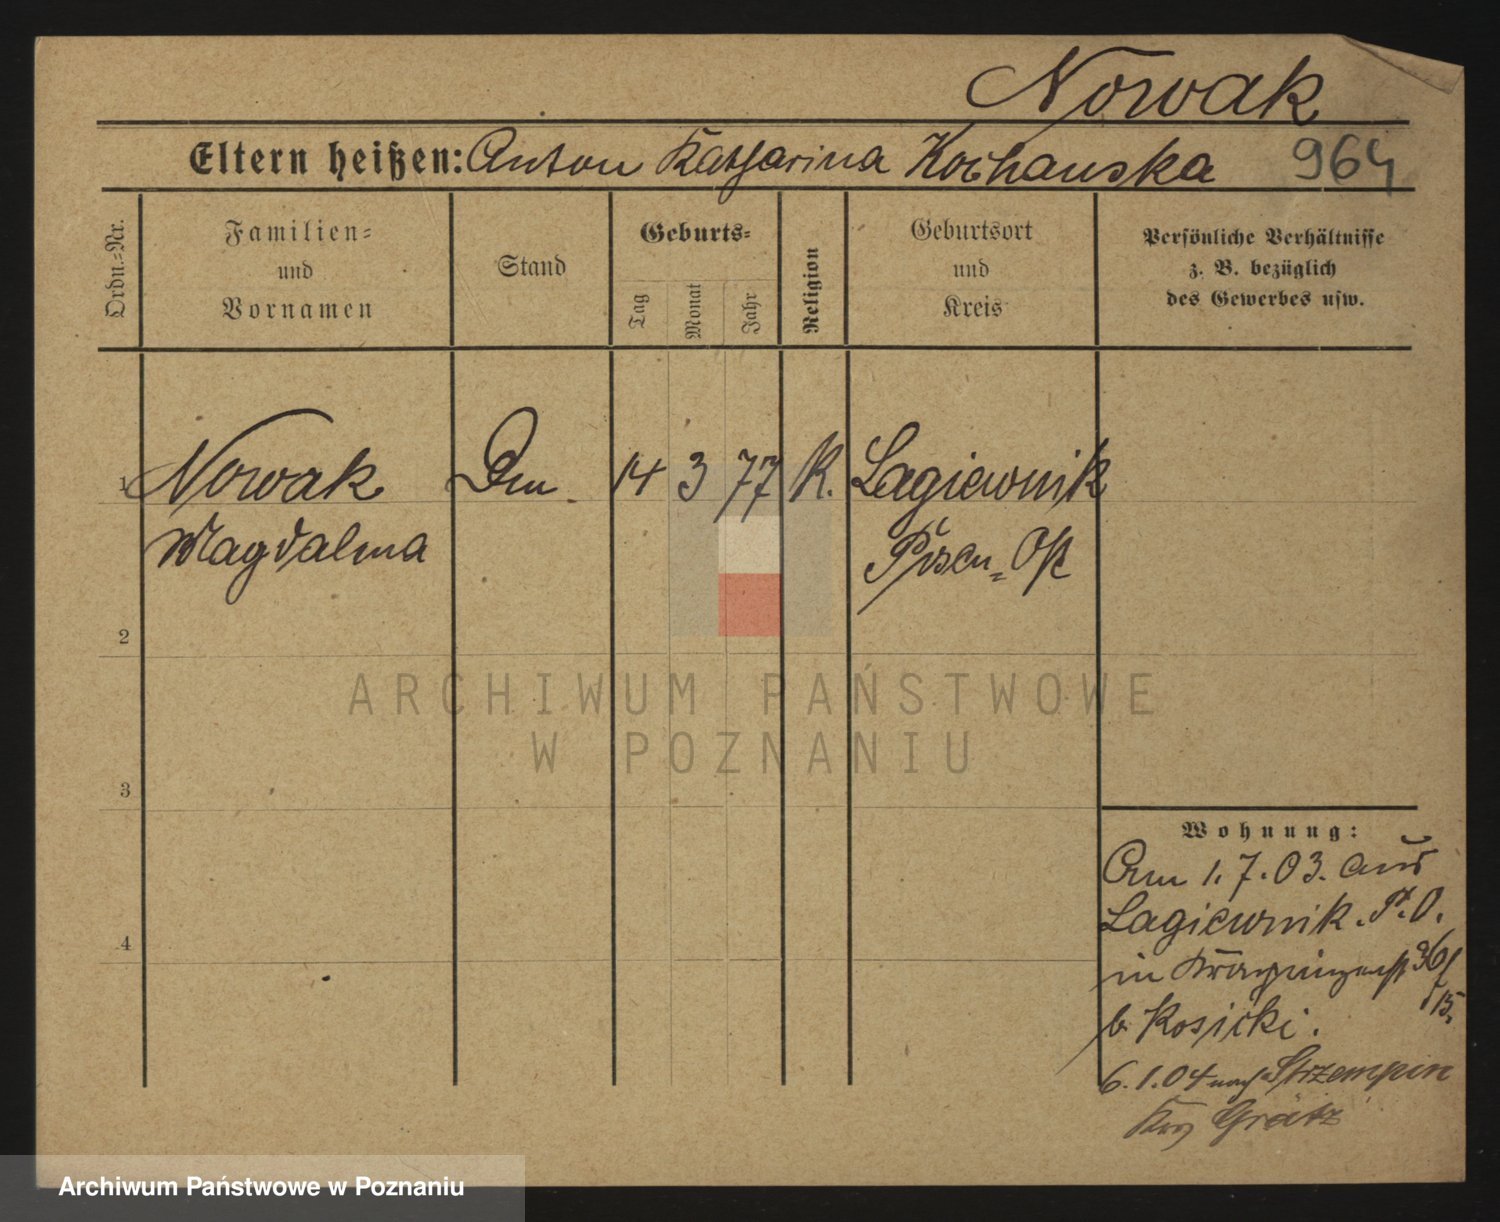 Nowak
Eltern heißen: Anton Katharina Kochanska 964
Ordn.-Nr.
Familien-
und
Vornamen
Stand
Geburts-
Tag
Monat
Jahr
Religion
Geburtsort
und
Kreis
Persönliche Verhältnisse
z. B. bezüglich
des Gewerbes usw.
1 Nowak 14 3 77 K. Lagiewnik
Magdalena Posen-Ost
2
ARCHIWUM PAŃSTWOWE
W POZNANIU
3
Wohnung:
Am 1.7.03. aus
Lagiewnik. P.O.
in 36/
15.
b. Kosicki.
4
6.1.04 nach Strzempin
Krs Grätz
Archiwum Państwowe w Poznaniu